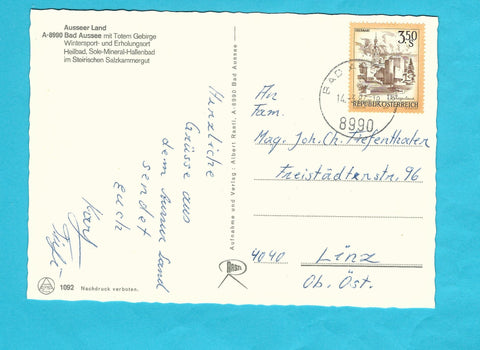 Ausseer Land
A-8990 Bad Aussee mit Totem Gebirge
Wintersport- und Erholungsort
Heilbad, Sole-Mineral-Hallenbad
im Steirischen Salzkammergut
Herzliche
Grüsse aus
dem Ausseer Land
sendet
euch
Karl
1092 Nachdruck verboten.
Aufnahme und Verlag: Albert Rastl, A-8990 Bad Aussee
Rastl
3.50
S
REPUBLIK ÖSTERREICH
BAD
8990
An
Fam.
Mag. Joh. Ch. Tiefenthaler
Freistädterstr. 96
4040 Linz
Ob. Öst.